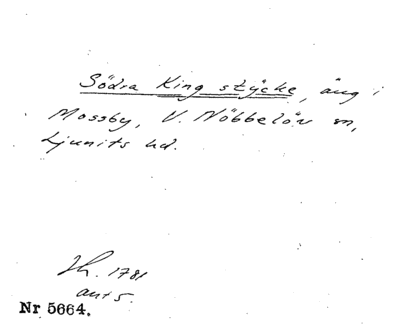 Södra King stycke, äng i
Mossby, V. Nöbbelöv sn,
Ljunits hd.
Jh. 1781
ant 5.
Nr 5664.